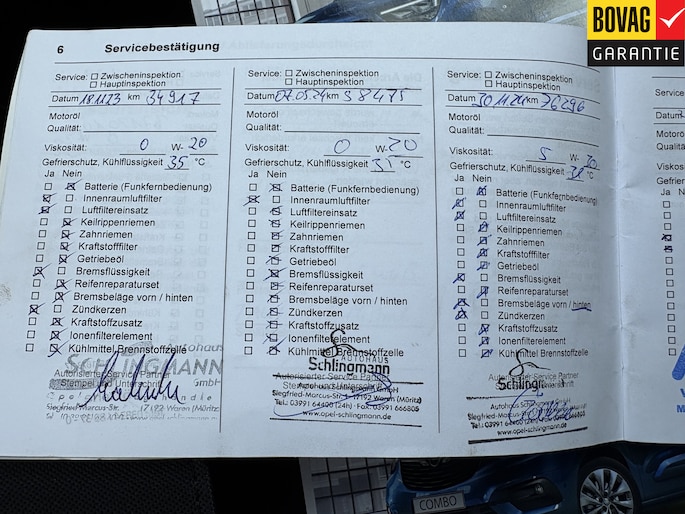 BOVAG
GARANTIE
6 Servicebestätigung
Service: Zwischeninspektion
Hauptinspektion
Datum 18.11.23 km 34917
Motoröl
Qualität:
Viskosität: 0 W- 20
Gefrierschutz, Kühlflüssigkeit 35 °C
Ja Nein
Batterie (Funkfernbedienung)
Innenraumluftfilter
Luftfiltereinsatz
Keilrippenriemen
Zahnriemen
Kraftstofffilter
Getriebeöl
Bremsflüssigkeit
Reifenreparaturset
Bremsbeläge vorn / hinten
Zündkerzen
Kraftstoffzusatz
Ionenfilterelement
Kühlmittel Brennstoffzelle
Autohaus
SCHLINGMANN
Autorisierter Service Partner
Stempel und Unterschrift GmbH
Siegfried-Marcus-Str. 17192 Waren (Müritz)
Service: Zwischeninspektion
Hauptinspektion
Datum 07.05.24 km 58475
Motoröl
Qualität:
Viskosität: 0 W- 20
Gefrierschutz, Kühlflüssigkeit °C
Ja Nein
Batterie (Funkfernbedienung)
Innenraumluftfilter
Luftfiltereinsatz
Keilrippenriemen
Zahnriemen
Kraftstofffilter
Getriebeöl
Bremsflüssigkeit
Reifenreparaturset
Bremsbeläge vorn / hinten
Zündkerzen
Kraftstoffzusatz
Ionenfilterelement
Kühlmittel Brennstoffzelle
AUTOHAUS
Schlingmann
Autorisierter Service Partner
Siegfried-Marcus-Str. 17192 Waren (Müritz)
Tel.: 03991 64400 (24h) · Fax: 03991 666805
www.opel-schlingmann.de
Service: Zwischeninspektion
Hauptinspektion
Datum 30.11.24 km 76296
Motoröl
Qualität:
Viskosität: 5 W- 30
Gefrierschutz, Kühlflüssigkeit °C
Ja Nein
Batterie (Funkfernbedienung)
Innenraumluftfilter
Luftfiltereinsatz
Keilrippenriemen
Zahnriemen
Kraftstofffilter
Getriebeöl
Bremsflüssigkeit
Reifenreparaturset
Bremsbeläge vorn / hinten
Zündkerzen
Kraftstoffzusatz
Ionenfilterelement
Kühlmittel Brennstoffzelle
Autorisierter Service Partner
Autohaus
Siegfried-Marcus-Str. 17192 Waren (Müritz)
Tel.: 03991 64400 (24h) Fax: 03991 666805
www.opel-schlingmann.de
Service
Datum
Motoröl
Qualität
Viskosität
Gefriers
Ja N
COMBO